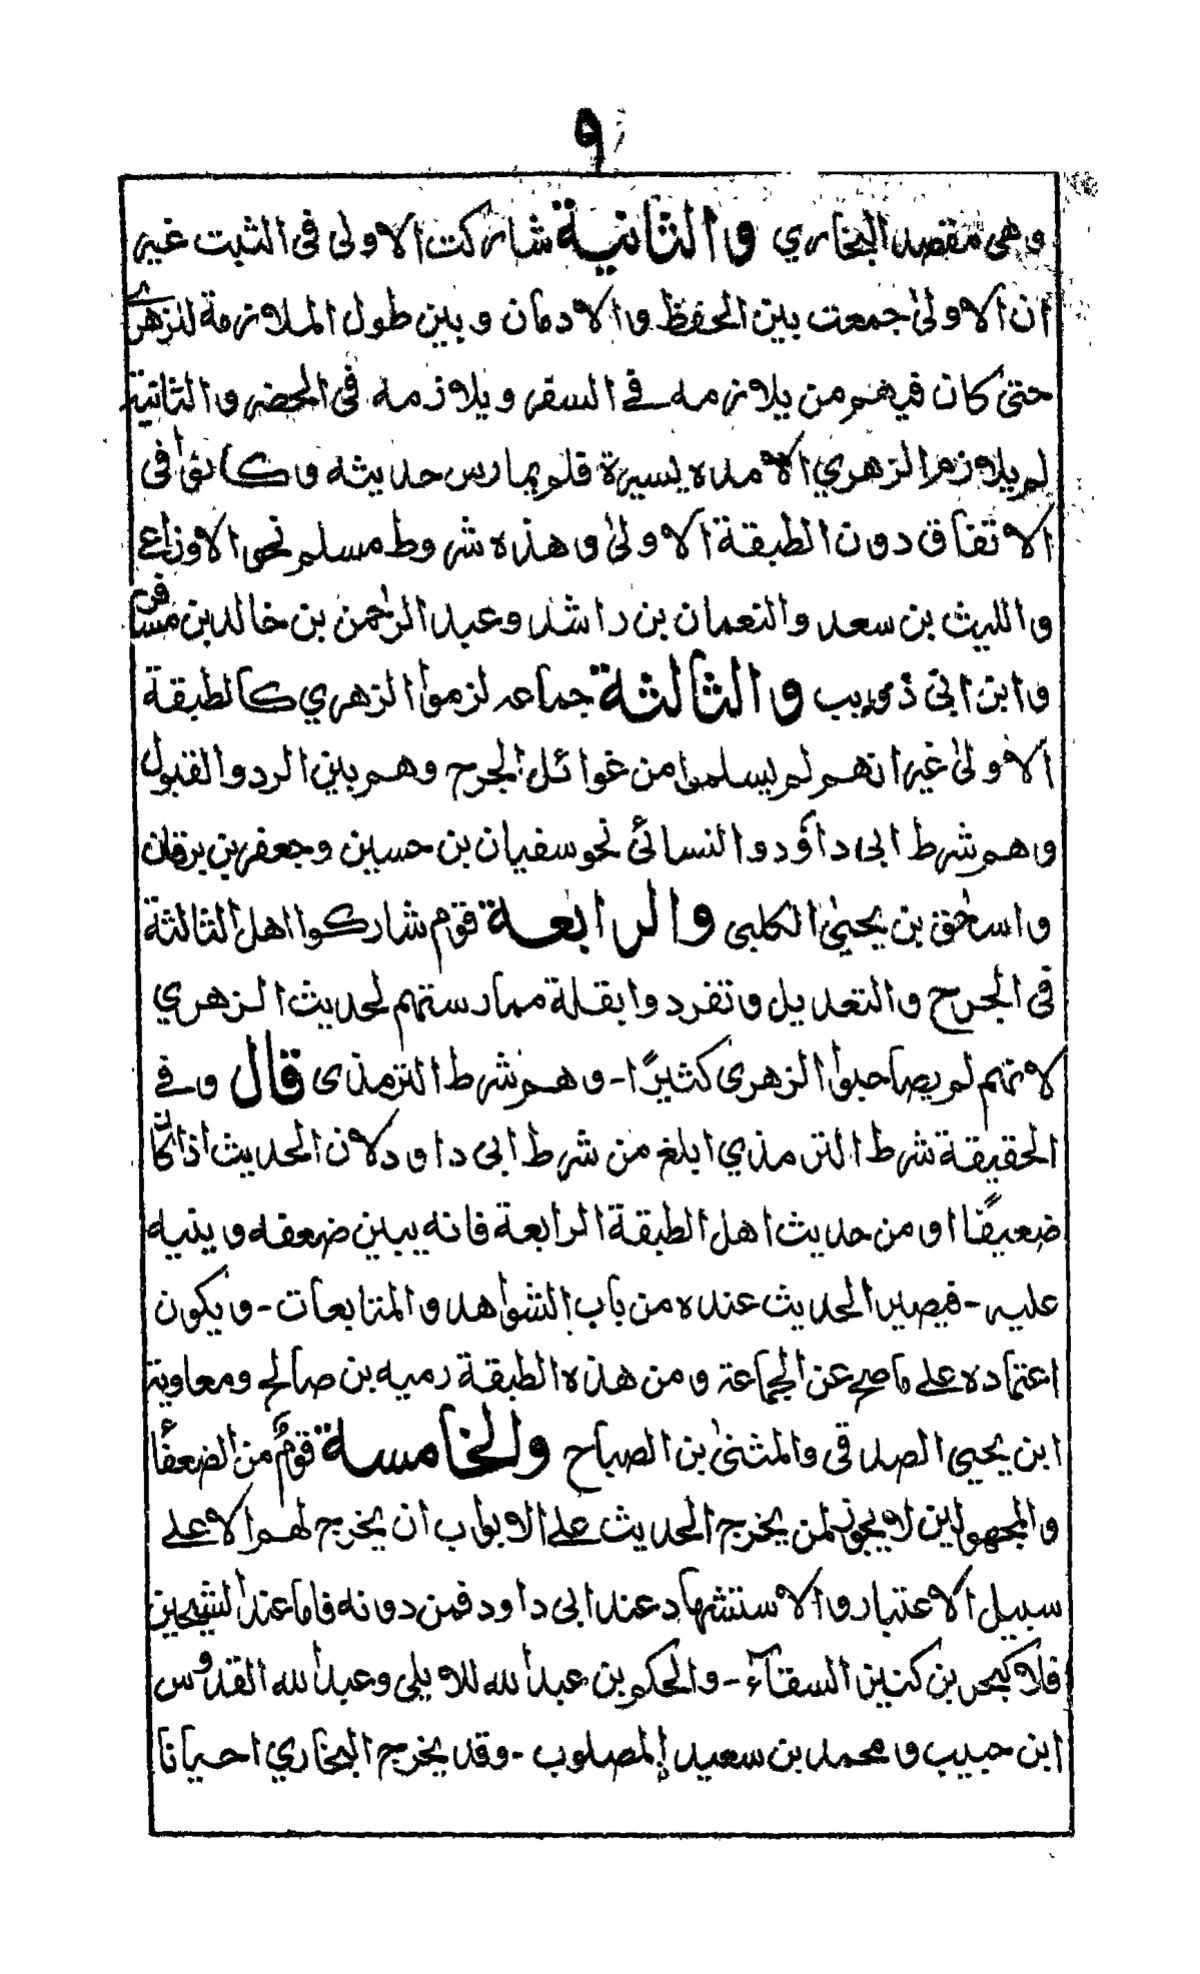 ٩
وهى مقصد البخاري والثانية شاركت الاولى فى الثبت غير
ان الاولىٰ جمعت بين الحفظ والادمان وبين طول الملازمة للزهرى
حتىٰ كان فيهم من يلازمه فے السفر ويلازمه فى الحضر والثانية
لم يلازموا الزهري الا مده يسيرة فلم يمارس حديثه وكانوا فى
الاتفاق دون الطبقة الاولىٰ وهذه شروط مسلم نحو الاوزاعے
والليث بن سعد والنعمان بن راشد وعبد الرحمٰن بن خالد بن مسافر
وابن ابى ذويب والثالثة جماعه لزموا الزهري كالطبقة
الاولىٰ غير انهم لم يسلموا من غوائل الجرح وهم بين الرد والقبول
وهم شرط ابى داؤد والنسائى نحو سفيان بن حسين وجعفر بن برقان
واسحٰق بن يحيىٰ الكلبى والرابعة قوم شاركوا اهل الثالثة
فى الجرح والتعديل وتفردوا بقلة ممارستهم لحديث الزهري
لانهم لم يصاحبوا الزهرى كثيرًا - وهم شرط الترمذى قال وفے
الحقيقة شرط الترمذي ابلغ من شرط ابى داود لان الحديث اذا كان
ضعيفًا او من حديث اهل الطبقة الرابعة فانه يبين ضعفه وينبه
عليه - فيصير الحديث عنده من باب الشواهد والمتابعات - ويكون
اعتماده علے ما صح عن الجماعة ومن هذه الطبقة رميه بن صالح ومعاوية
ابن يحيى الصدقى والمثنىٰ بن الصباح والخامسة قومٌ من الضعفا
والمجهولين لا يجوز لمن يخرج الحديث علے الابواب ان يخرج لهم الا علے
سبيل الاعتبار والاستشهاد عند ابى داود فمن دونه فاما عند الشيخين
فلا كبحر بن كنين السقآء - والحكم بن عبد الله للايلى وعبد الله القدوس
ابن حبيب ومحمد بن سعيد المصلوب - وقد يخرج البخاري احيانا